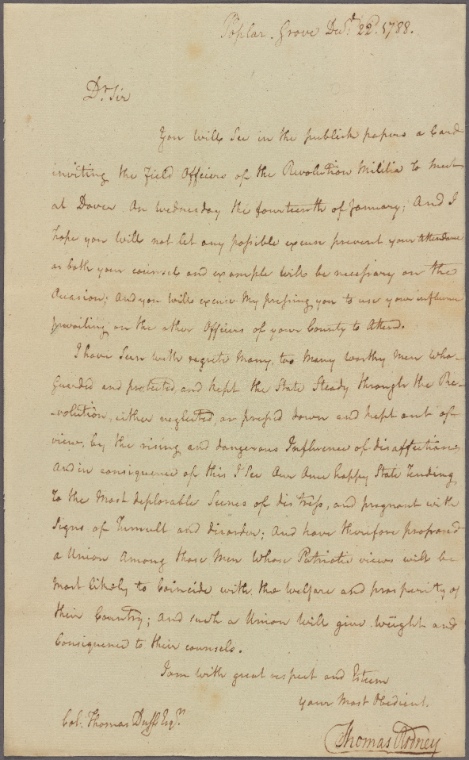 Poplar Grove Decr. 22d. 1788.
Dr. Sir
You will See in the publick papers a Card
inviting the Field Officers of the Revolution Militia to meet
at Dover On Wednesday the fourteenth of January; And I
hope you will not let any possible excuse prevent your attendance
as both your counsel and example will be necessary on the
Occasion; And you will excuse My pressing you to use your influence
prevailing on the other Officers of your County to Attend.
I have Seen with regrete Many, too Many worthy Men who
Guarded and protected, and kept the State Steady through the Re-
-volution, either neglected, or press'd down and kept out of
view, by the rising and dangerous Influence of disaffection,
And in consequence of this I See Our Once happy State Tending
To the Most deplorable Scenes of distress, and pregnant with
Signs of Tumult and disorder; And have therefore proposed
a Union Among those Men Whose Patriotic views will be
Most likely to Coincide with the Welfare and prosperity of
their Country; And such a Union Will give weight and
Consequence to their counsels.
I am with great respect and Esteem
your Most Obedient.
Col. Thomas Duff Esqr.
Thomas Rodney